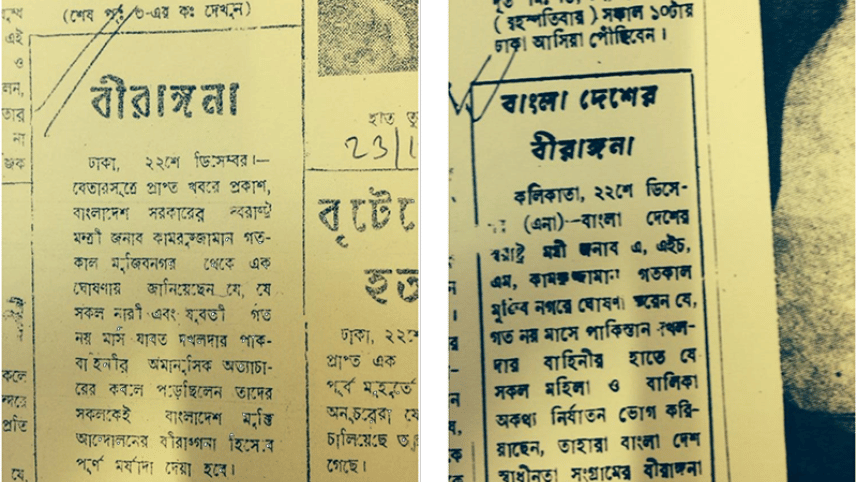 (শেষ পৃঃ ৩-এর কঃ দেখুন)
এই
ও
তার
না
বীরাঙ্গনা
ঢাকা, ২২শে ডিসেম্বর।—
বেতারসূত্রে প্রাপ্ত খবরে প্রকাশ,
বাংলাদেশ সরকারের স্বরাষ্ট্র
মন্ত্রী জনাব কামরুজ্জামান গত-
কাল মুজিবনগর থেকে এক
ঘোষণায় জানিয়েছেন যে, যে
সকল নারী এবং যুবতী গত
নয় মাস যাবত দখলদার পাক-
বাহিনীর অমানুসিক অত্যাচা-
রের কবলে পড়েছিলেন তাদের
সকলকেই বাংলাদেশ মুক্তি
আন্দোলনের বীরাঙ্গনা হিসেবে
পূর্ণ মর্যাদা দেয়া হবে।
কলে
প্রতি
যে,
হাত
23/1
বৃটে
হত
ঢাকা, ২২শে
প্রাপ্ত এক
পূর্ব মুহূর্তে
অনুচরেরা যে
চালিয়েছে
গেছে।
(বৃহস্পতিবার) সকাল ১০টায়
ঢাকা আসিয়া পৌঁছিবেন।
বাংলা দেশের
বীরাঙ্গনা
কলিকাতা, ২২শে ডিসে-
(এনা)—বাংলা দেশের
স্বরাষ্ট্র মন্ত্রী জনাব এ, এইচ,
এম, কামরুজ্জামান গতকাল
মুজিব নগরে ঘোষণা করেন যে,
গত নয় মাসে পাকিস্তান দখল-
দার বাহিনীর হাতে যে
সকল মহিলা ও বালিকা
অকথ্য নির্যাতন ভোগ করি-
য়াছেন, তাহারা বাংলা দেশ
স্বাধীনতা সংগ্রামের বীরাঙ্গনা